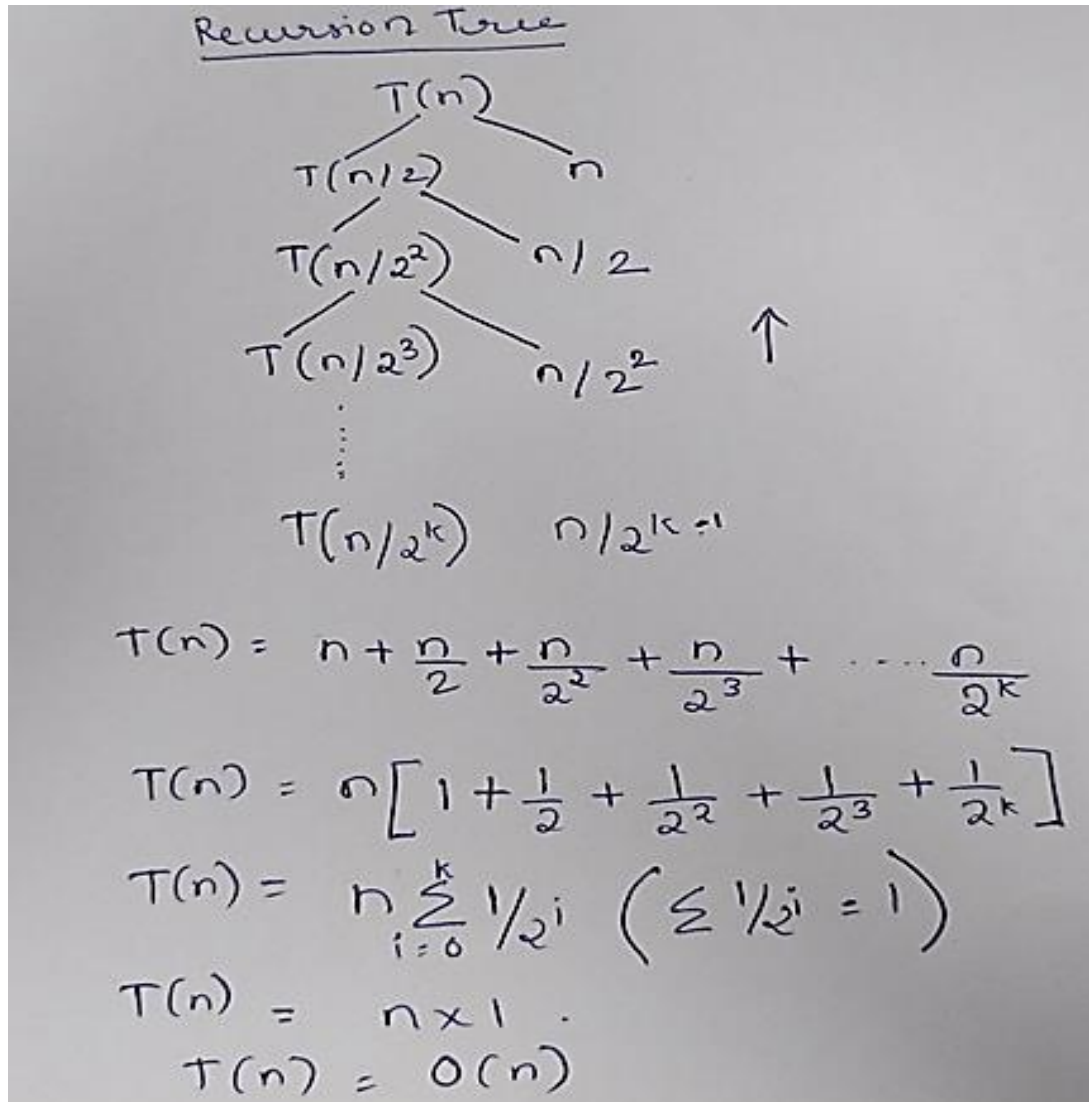 Recursion Tree
T(n)
T(n/2) n
T(n/2²) n/2
T(n/2³) n/2² ↑
T(n/2ᵏ) n/2ᵏ⁻¹
T(n) = n + n/2 + n/2² + n/2³ + ..... n/2ᵏ
T(n) = n[1 + 1/2 + 1/2² + 1/2³ + 1/2ᵏ]
T(n) = n Σᵢ₌₀ᵏ 1/2ⁱ (Σ 1/2ⁱ = 1)
T(n) = n × 1 .
T(n) = O(n)